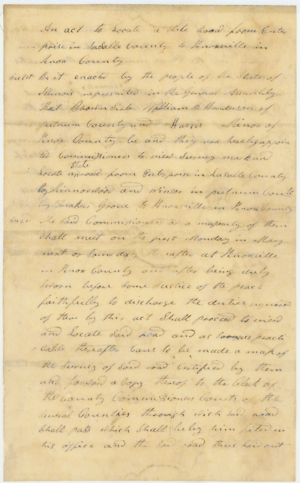 An act to locate a state road from Enter
prise in Lasalle County to Knoxville in
Knox County
Sect 1 Be it enacted by the people of the State of
Illinois represented in the General Assembly
that William Henderson of
putnam County and Harris Miner of
Knox County be and they are hereby appoin
ted Commissioners to view survey mark and
State
locate road from Enterprise in Lasalle County
by and in putnam County
by Grove to Knoxville in Knox County
The said Commissioners or a majority of them
shall meet on the first Monday in May
next or thereafter at Knoxville
in Knox County and after being duly
sworn before some Justice of the peace
faithfully to discharge the duties required
of them by this act Shall proceed to view
and locate said road and as soon as practi
cable thereafter cause to be made a map of
the survey of said road certified by them
and forward a copy thereof to the clerk of
the County Commissioners Courts of the
several Counties through which said road
shall pass which shall be by him filed in
his office and the said road thus laid out